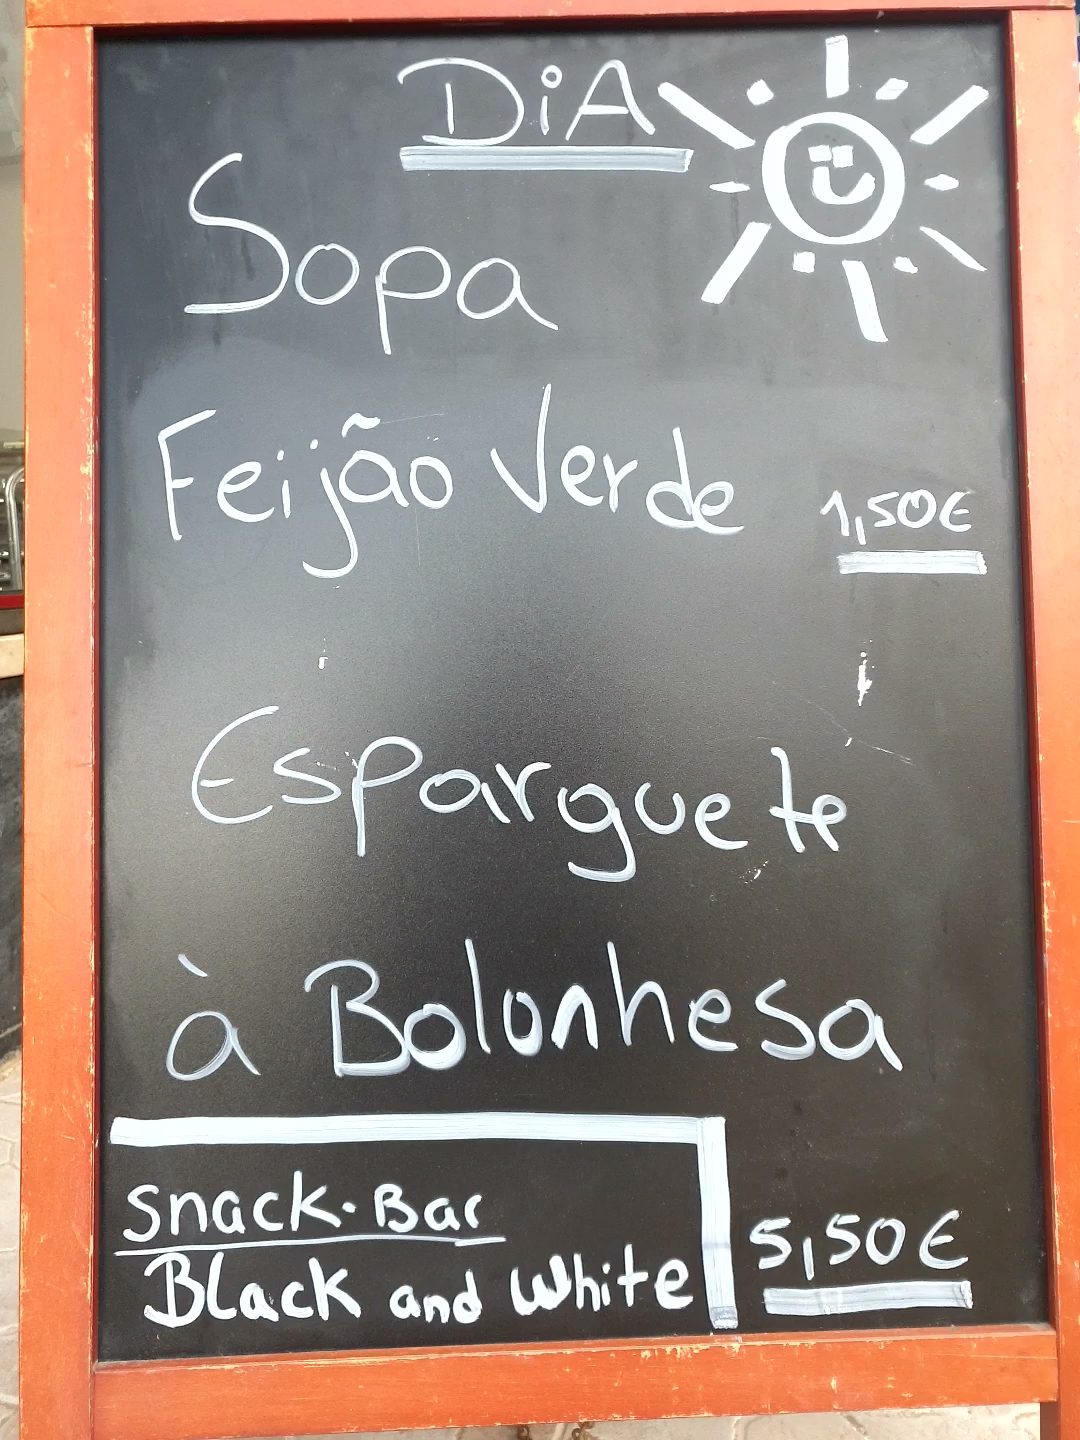 DiA
Sopa
Feijão Verde 1,50€
Esparguete
à Bolonhesa
Snack-Bar
Black and White 5,50€